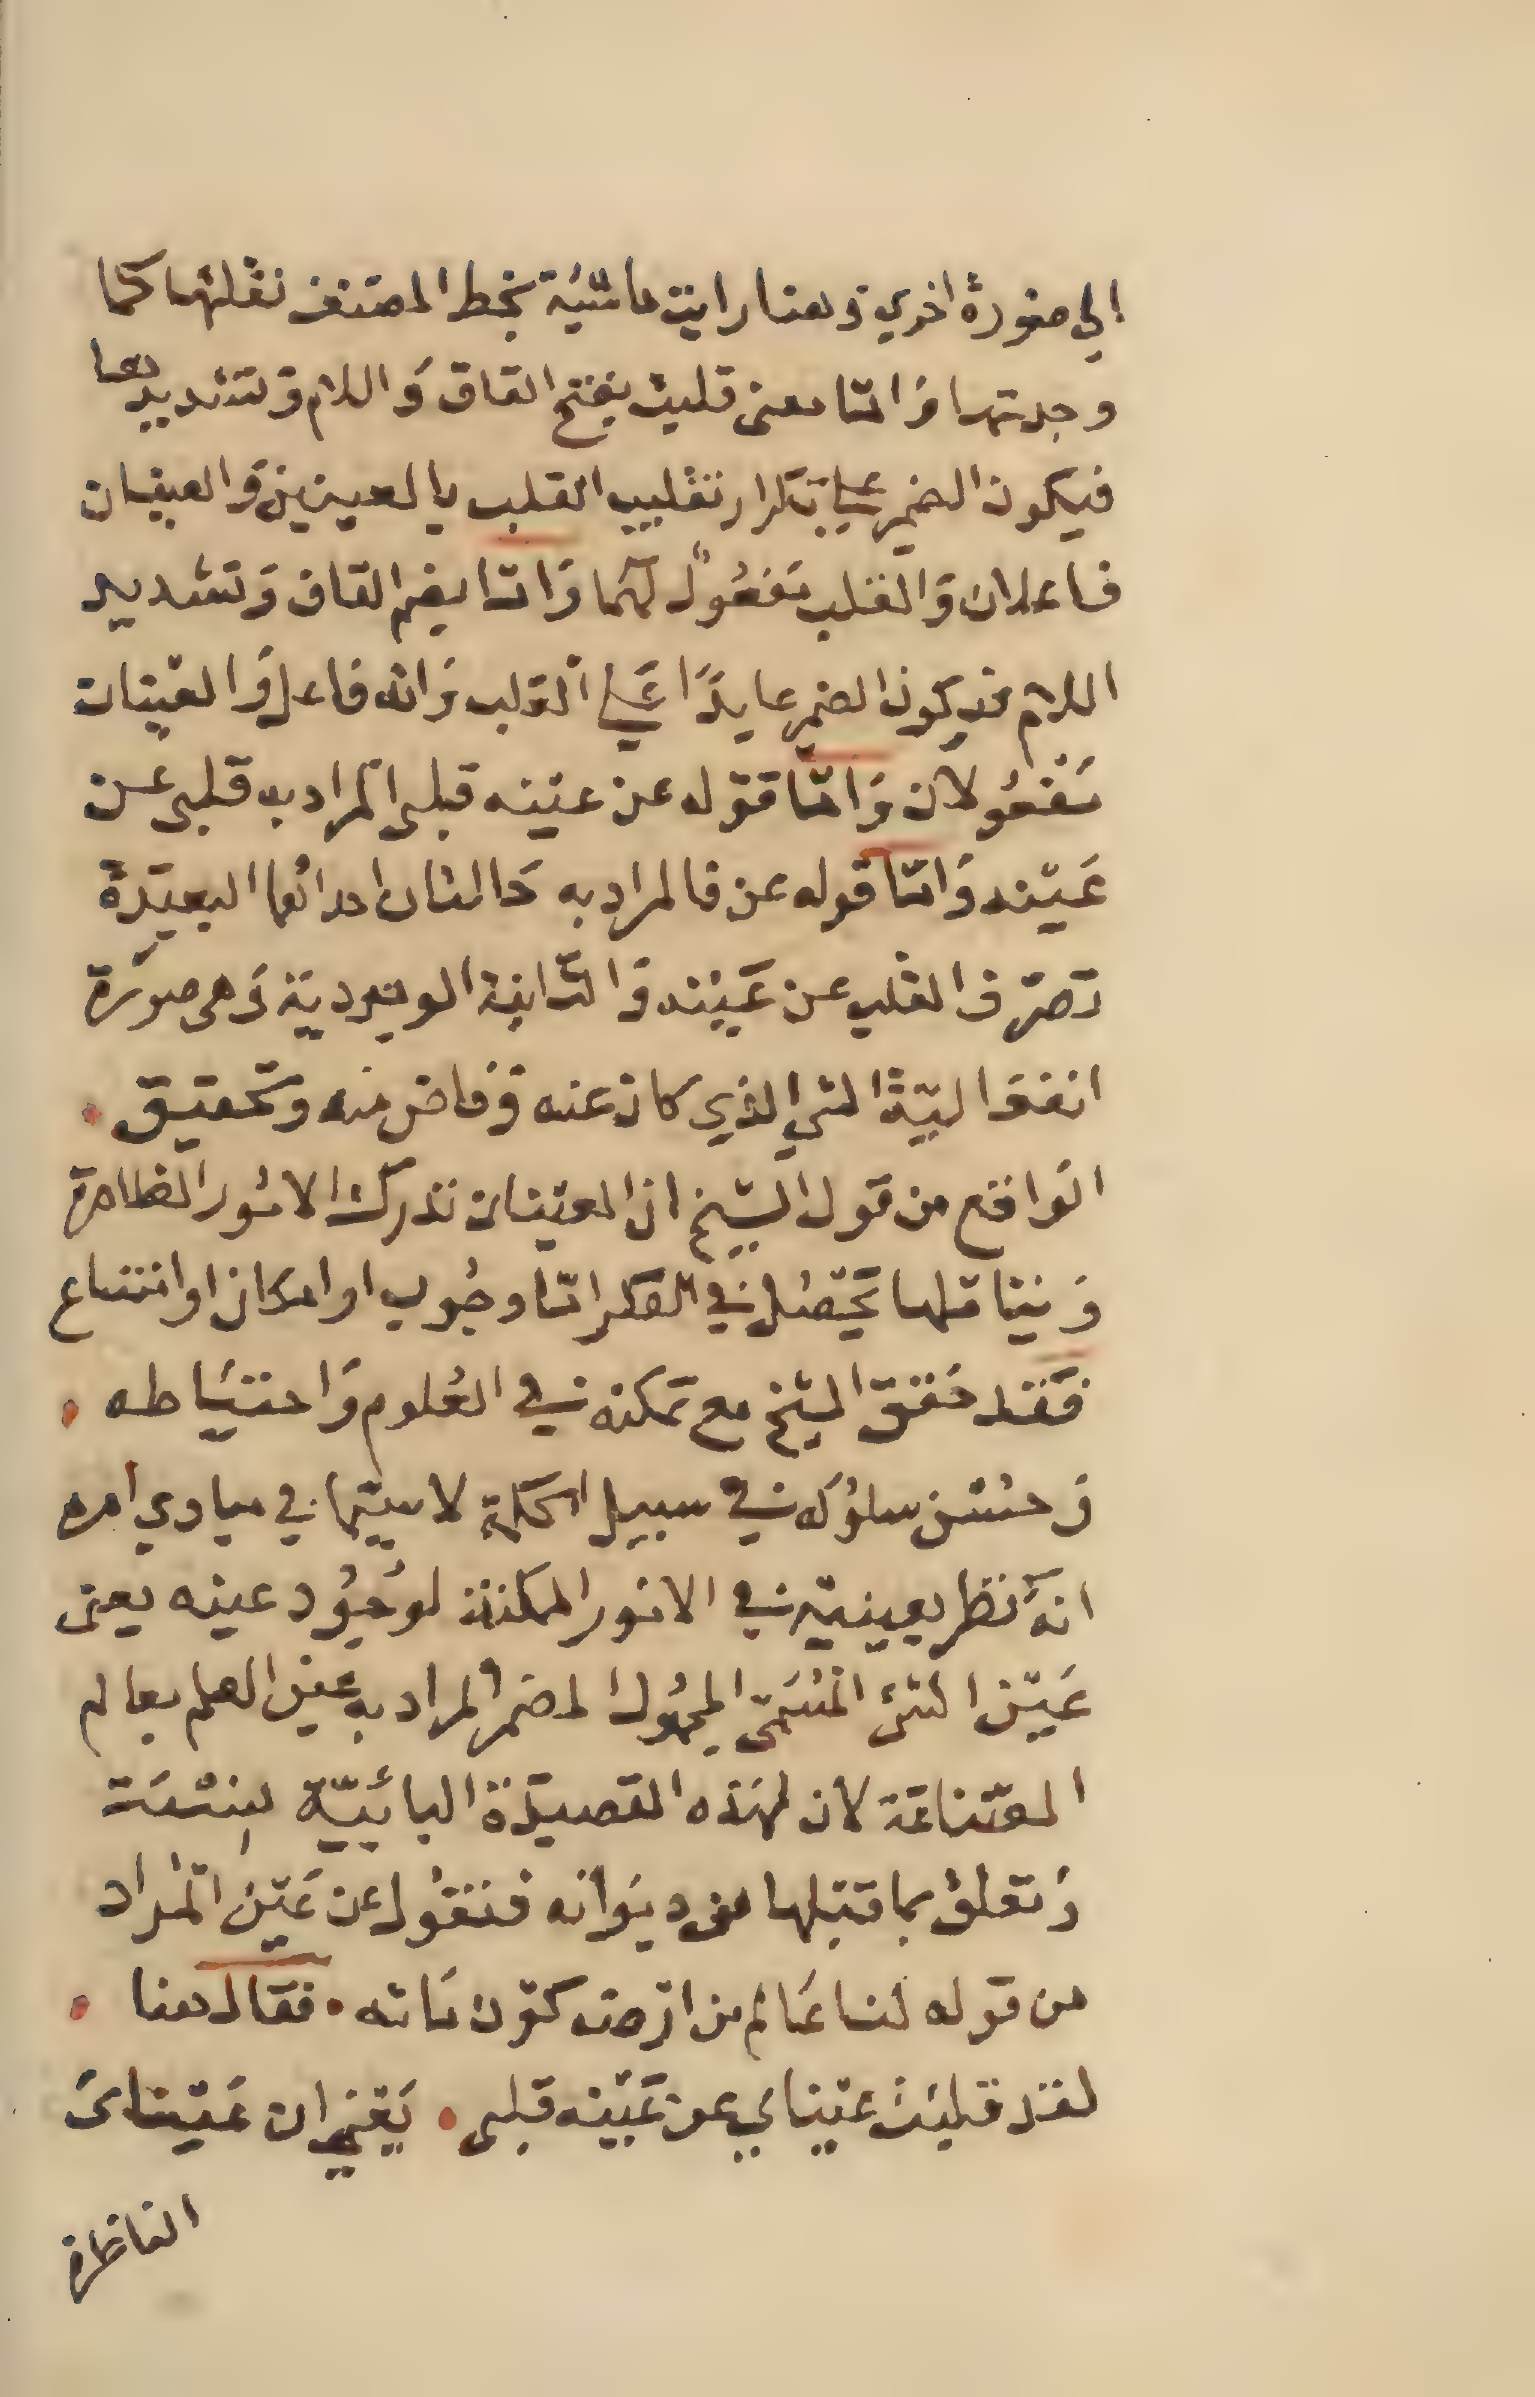 الى صورة اخرى وهنا رايت حاشية بخط المصنف نقلتها كما
وجدتها وَاما معنى قلبت بفتح القاف وَاللام وَتشديدها
فيكون الضمير على تكرار تقليب القلب بالعينين وَالعينان
فاعلان وَالقلب مَفعُولٌ لهما وَاما بضم القاف وَتشديد
اللام فيكون الضمير عايدًا عَلى القلب وَانه فاعل وَالعينان
مَفعُولان وَامّا قوله عن عينه قبلى المراد به قلبى عن
عَينه وَامّا قوله عن فالمراد به البعيدة
تصرف القلب عن عَينه وَالثانية الوجودية وَهى صورَة
الشي الذي كان عنه وَفاض منه وتحقيق
الوَاقع من قول الشيخ ان العينان تدرك الامُور الظاهرة
وَيتصل في الفكر امّا وجُوب او امكان او امتناع
فقد حَقق الشيخ مع تمكنه في العُلوم وَاحتيَاطه
وَحسْن سلوُكه في سبيل الحكمة لا سيّما في مبادي امره
انهُ نظر بعينيه في الامُور الممكنة لوُجُود عينه يعنى
عَين الشئ المُسَمّى المجهُول المضمر المراد به عين العلم بعالم
الصّناعَة لان لهَذه القصيدَة البائيّة نِسْبَة
وَتعلق بما قبلها من ديوَانه فنقُول عن عَين المُراد
من قوله لنا عَالم من ارضه كوّن مَائه . فقال هنا
لقد قلبَت عينايَ عن عَينه قبلى . يَعْني ان عَيناىَ
الناظرة